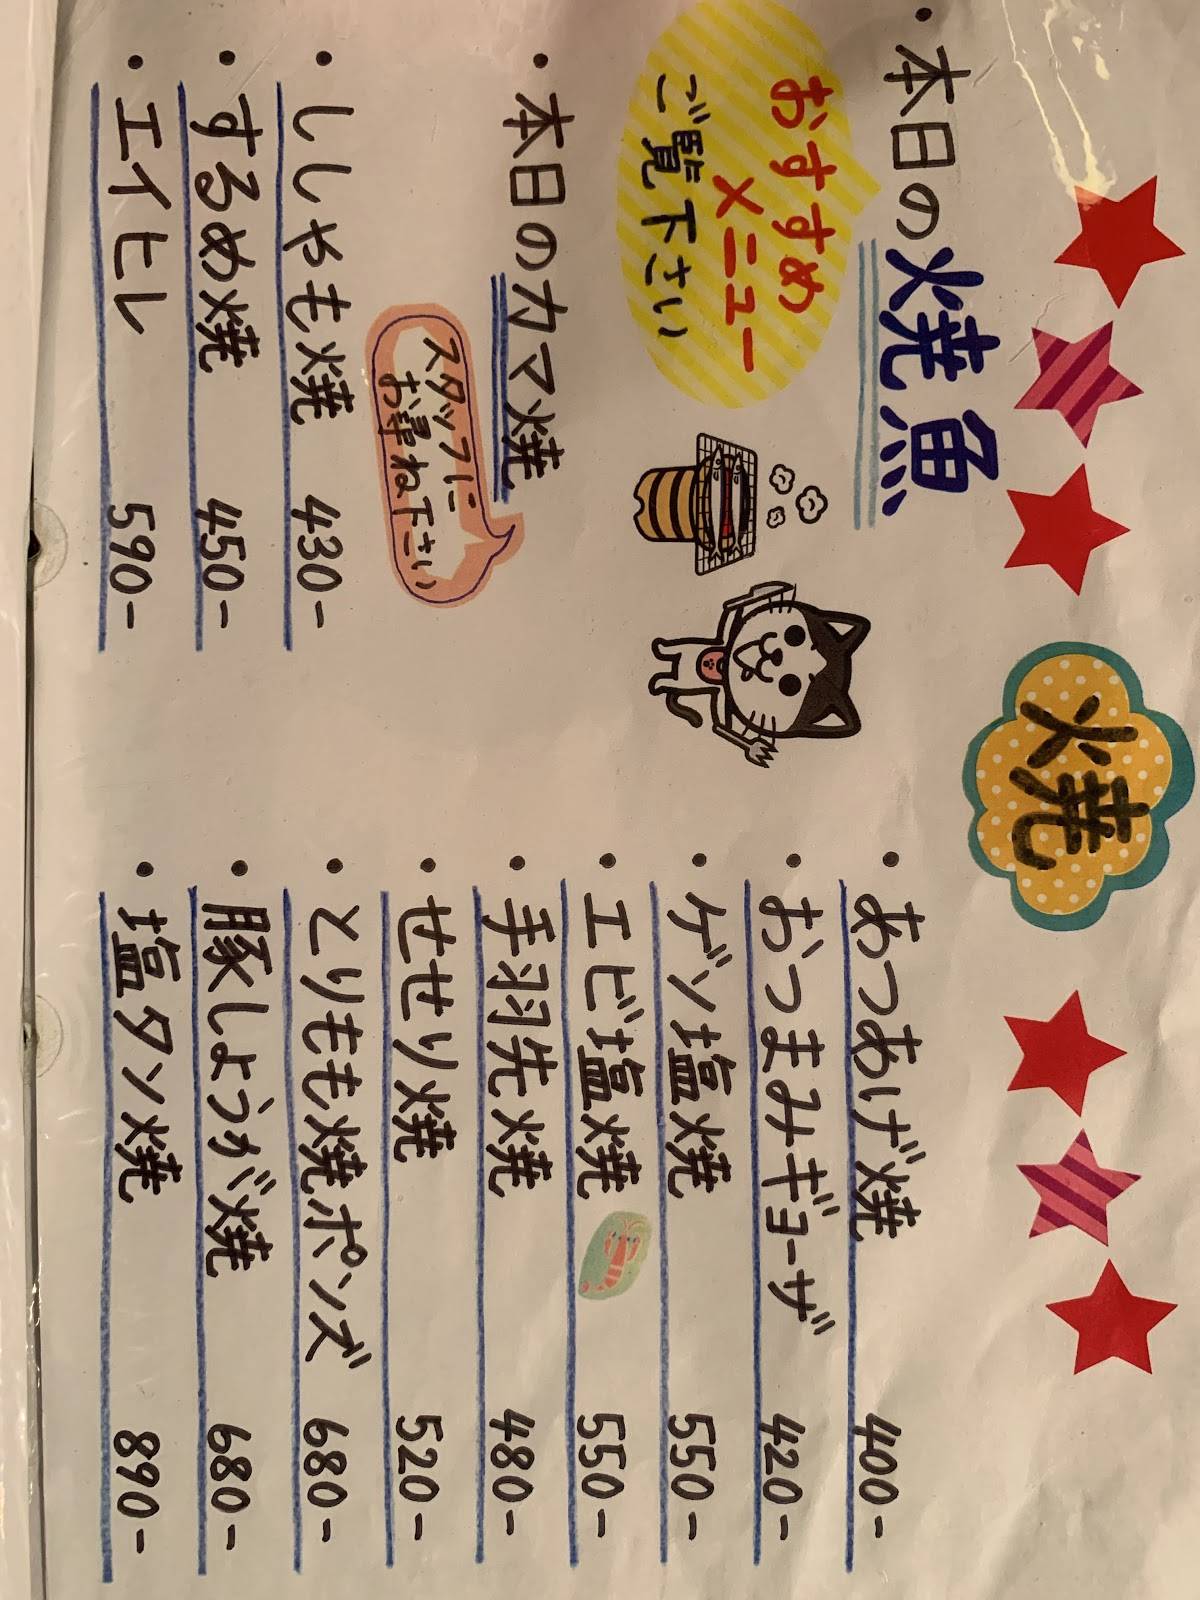 焼
・本日の焼魚
おすすめ
メニュー
ご覧下さい
・本日のカマ焼
スタッフに
お尋ね下さい
・ししゃも焼 430-
・するめ焼 450-
・エイヒレ 590-
・あつあげ焼 400-
・おつまみギョーザ 420-
・ゲソ塩焼 550-
・エビ塩焼 550-
・手羽先焼 480-
・せせり焼 520-
・とりもも焼ポンズ 680-
・豚しょうが焼 680-
・塩タン焼 890-